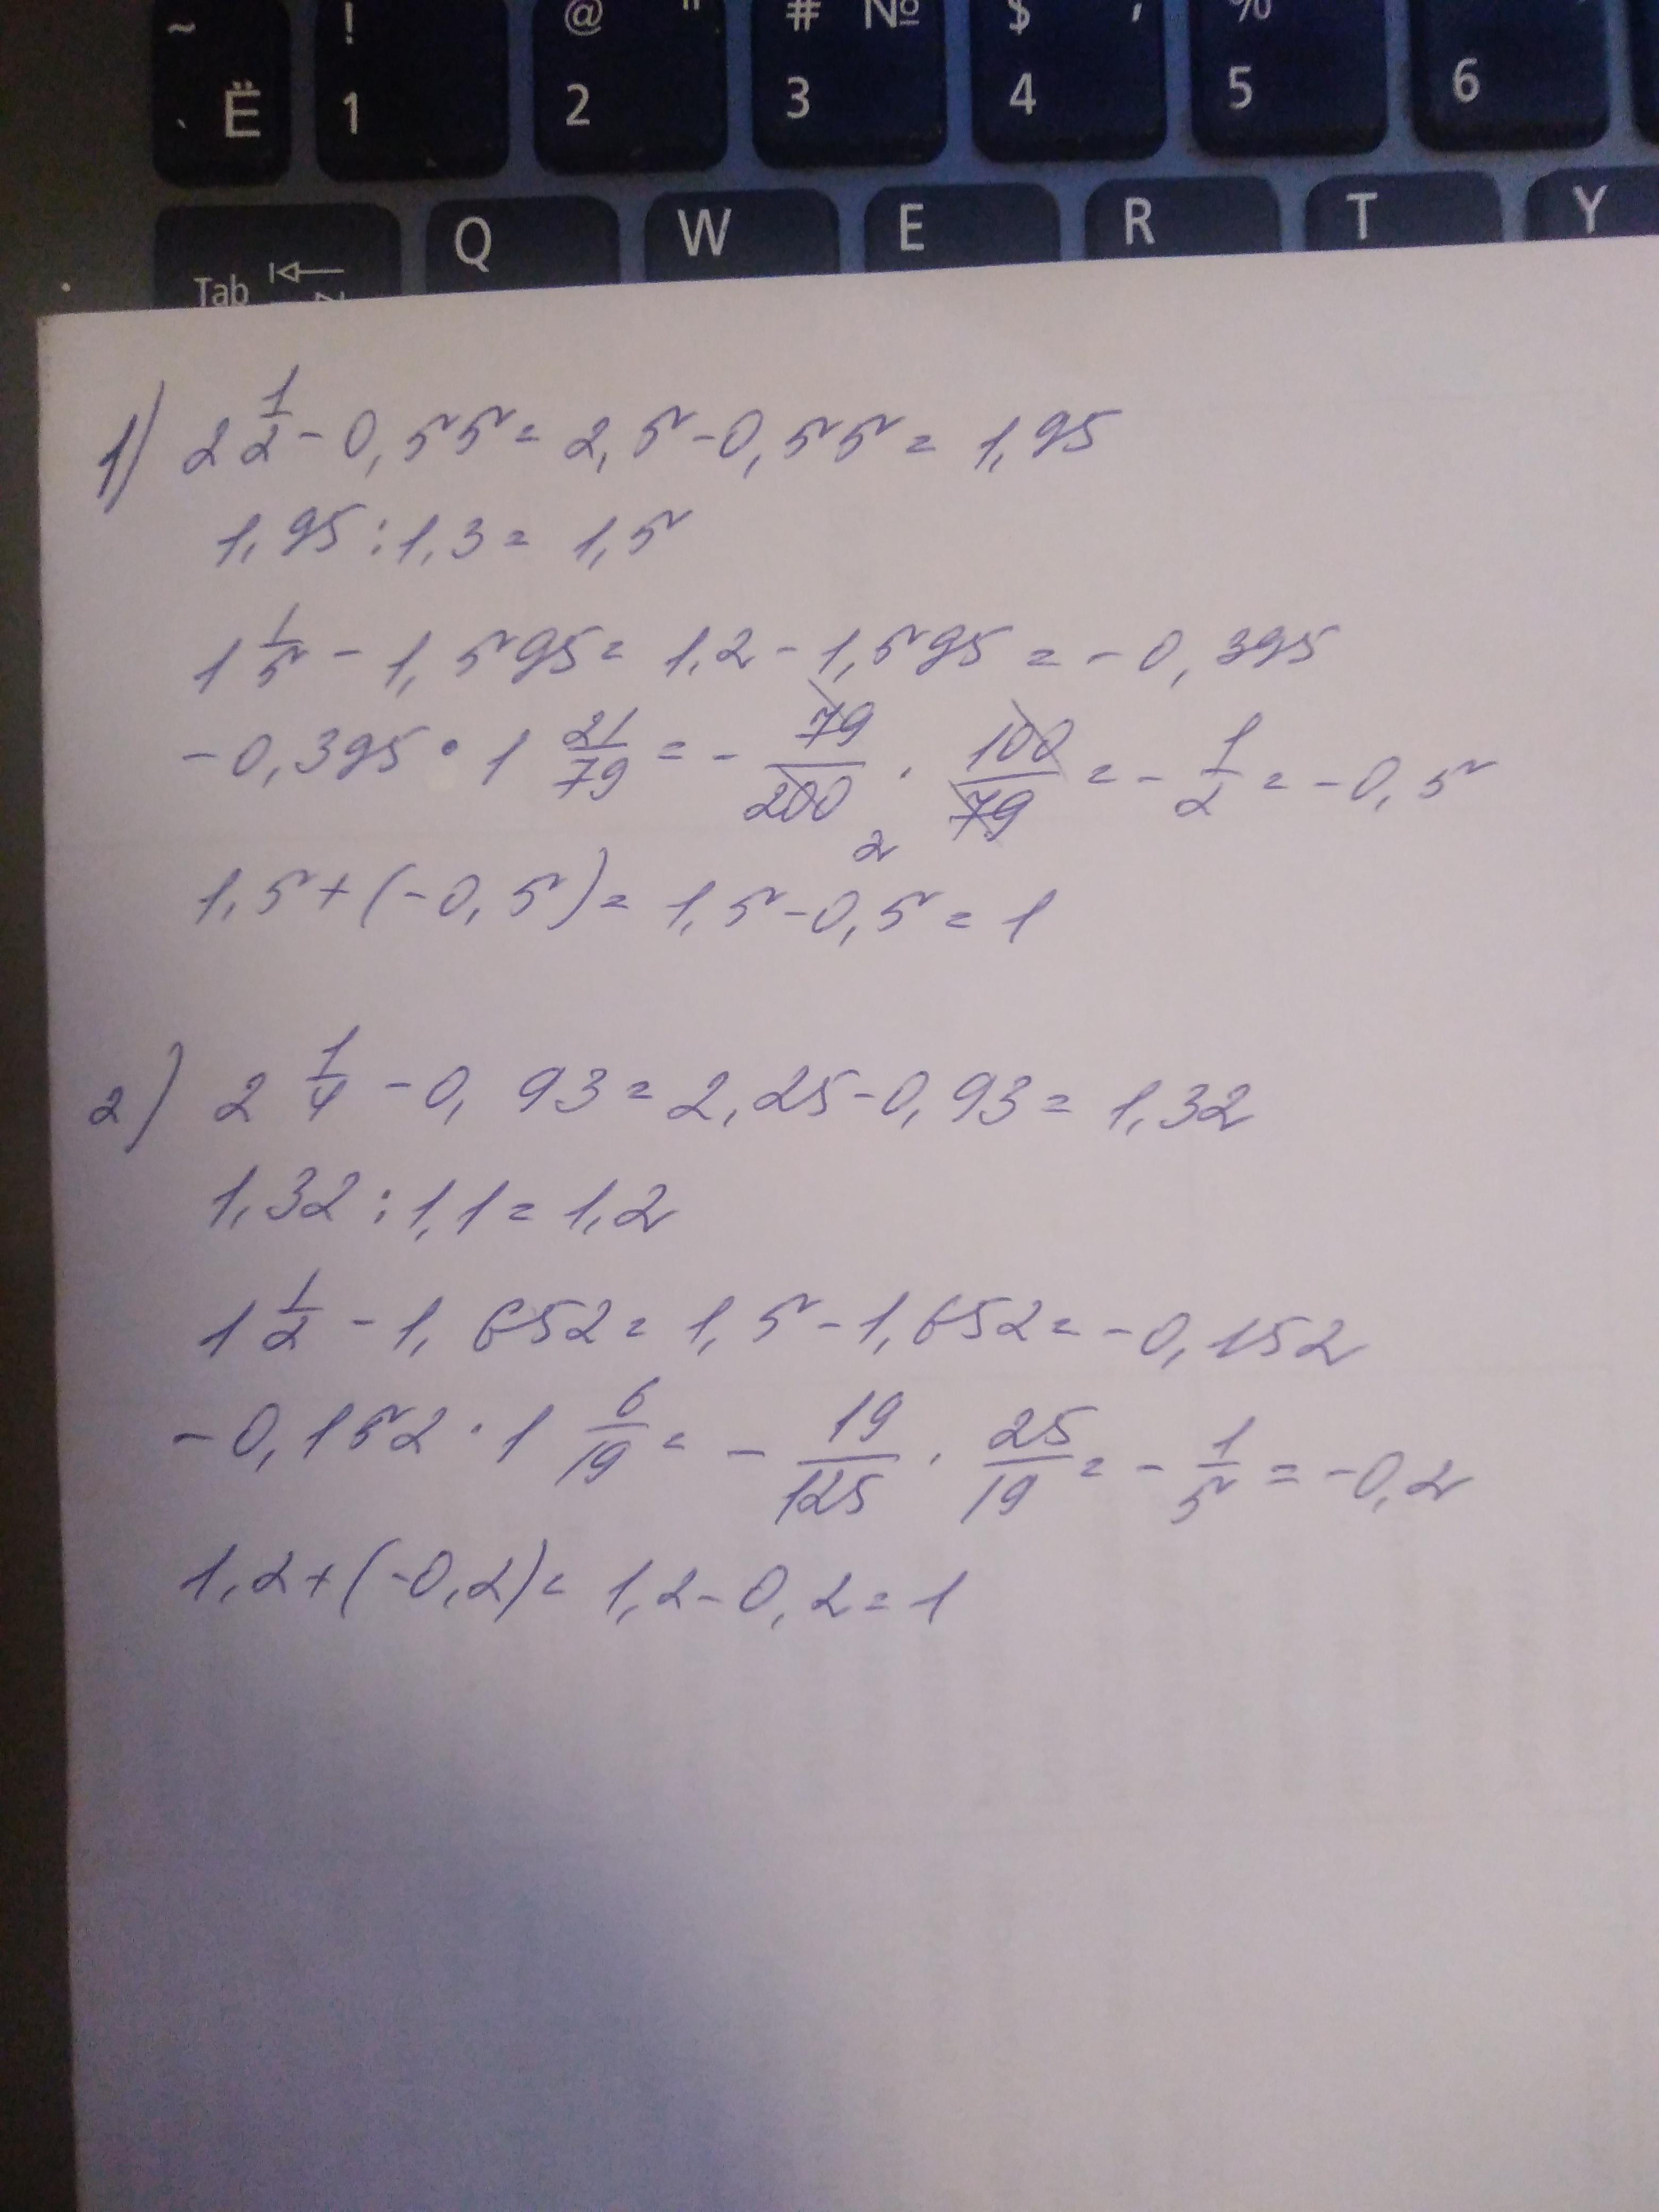 ~ ! @ " # № $ ; %
` Ё 1 2 3 4 5 6
Tab Q W E R T Y
1) 2 1/2 - 0,55 = 2,5 - 0,55 = 1,95
1,95 : 1,3 = 1,5
1 1/5 - 1,595 = 1,2 - 1,595 = -0,395
-0,395 · 1 21/79 = - 79/200 2 · 100/79 = - 1/2 = -0,5
1,5 + (-0,5) = 1,5 - 0,5 = 1
2) 2 1/4 - 0,93 = 2,25 - 0,93 = 1,32
1,32 : 1,1 = 1,2
1 1/2 - 1,652 = 1,5 - 1,652 = -0,152
-0,152 · 1 6/19 = - 19/125 · 25/19 = - 1/5 = -0,2
1,2 + (-0,2) = 1,2 - 0,2 = 1